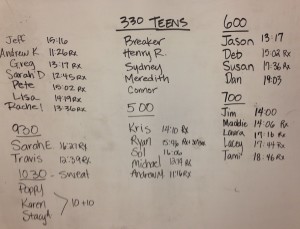 Jeff 15:16
Andrew K. 11:26 Rx
Greg 13:17 Rx
Sarah D 12:45 Rx
Pete 15:02 Rx
Lisa 14:19 Rx
Rachel 13:36 Rx
930
Sarah E 16:21 Rx
Travis 12:39 Rx
1030 - Sweat
Poppy
Karen
Stacy
10+10
330 TEENS
Breaker
Henry R.
Sydney
Meredith
Connor
500
Kris 14:10 Rx
Ryan 5:46 Rx
Sol 16:06
Michael 12:19 Rx
Andrew M. 11:16 Rx
600
Jason 13:17
Deb 15:02 Rx
Susan 17:36 Rx
Dan 19:03
700
Jim 14:00
Maddie 14:06 Rx
Laura 17:16 Rx
Lacey 17:44 Rx
Tami 18:46 Rx